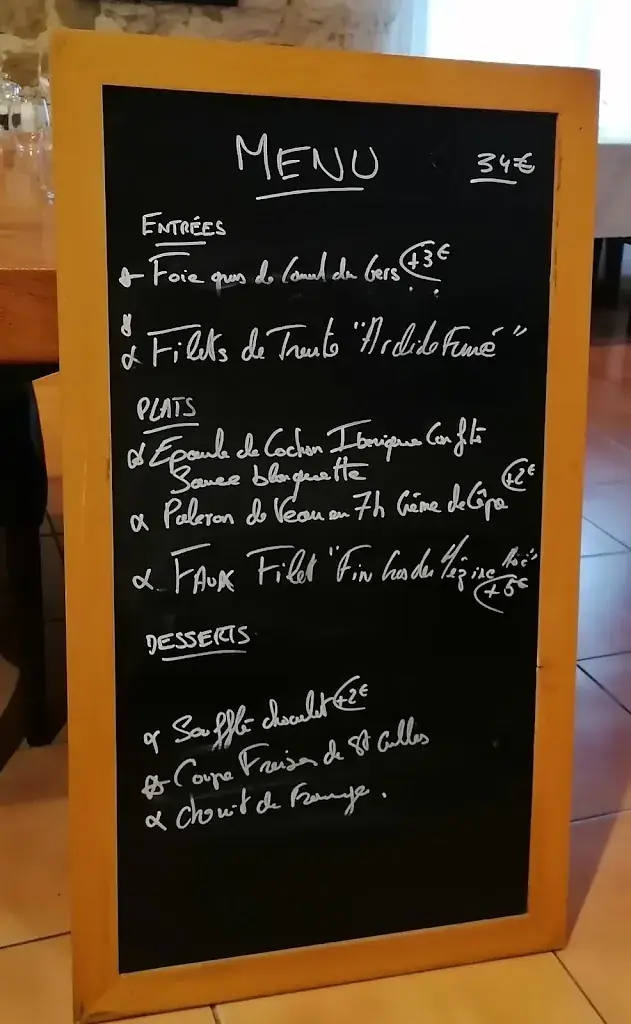 MENU 34€
ENTRÉES
Foie gras de Canard du Gers +3€
Filets de Truite "Ardidefumé"
PLATS
Epaule de Cochon Iberique Confite
Sauce blanquette
Paleron de Veau en 7h Crème de Cêpe +2€
FAUX Filet "Fin Gras du Mézinc" +5€
DESSERTS
Soufflé chocolat +2€
Coupe Fraises de St Gilles
Chariot de Fromage.